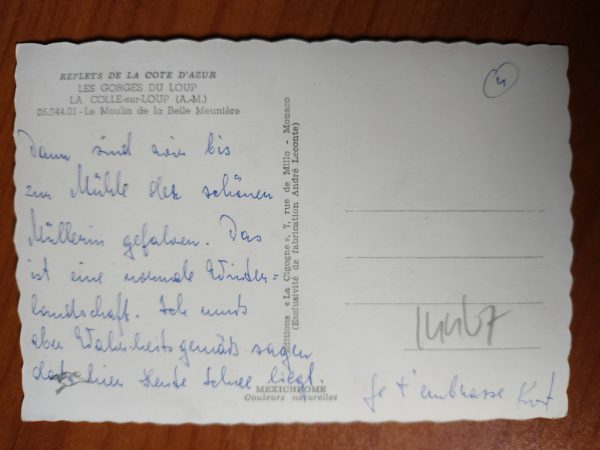 REFLETS DE LA COTE D'AZUR
LES GORGES DU LOUP
LA COLLE-sur-LOUP (A.-M.)
06.044.01 - Le Moulin de la Belle Meunière
Dann sind wir bis
zur Mühle der schönen
Müllerin gefahren. Das
ist eine normale Winter=
landschaft. Ich muss
aber Wahrheitsgemäß sagen
dass hier Heute Schnee liegt.
Editions « La Cigogne », 7, rue de Millo - Monaco
(Exclusivité de fabrication André Leconte)
MEXICHROME
Couleurs naturelles
Je t'embrasse